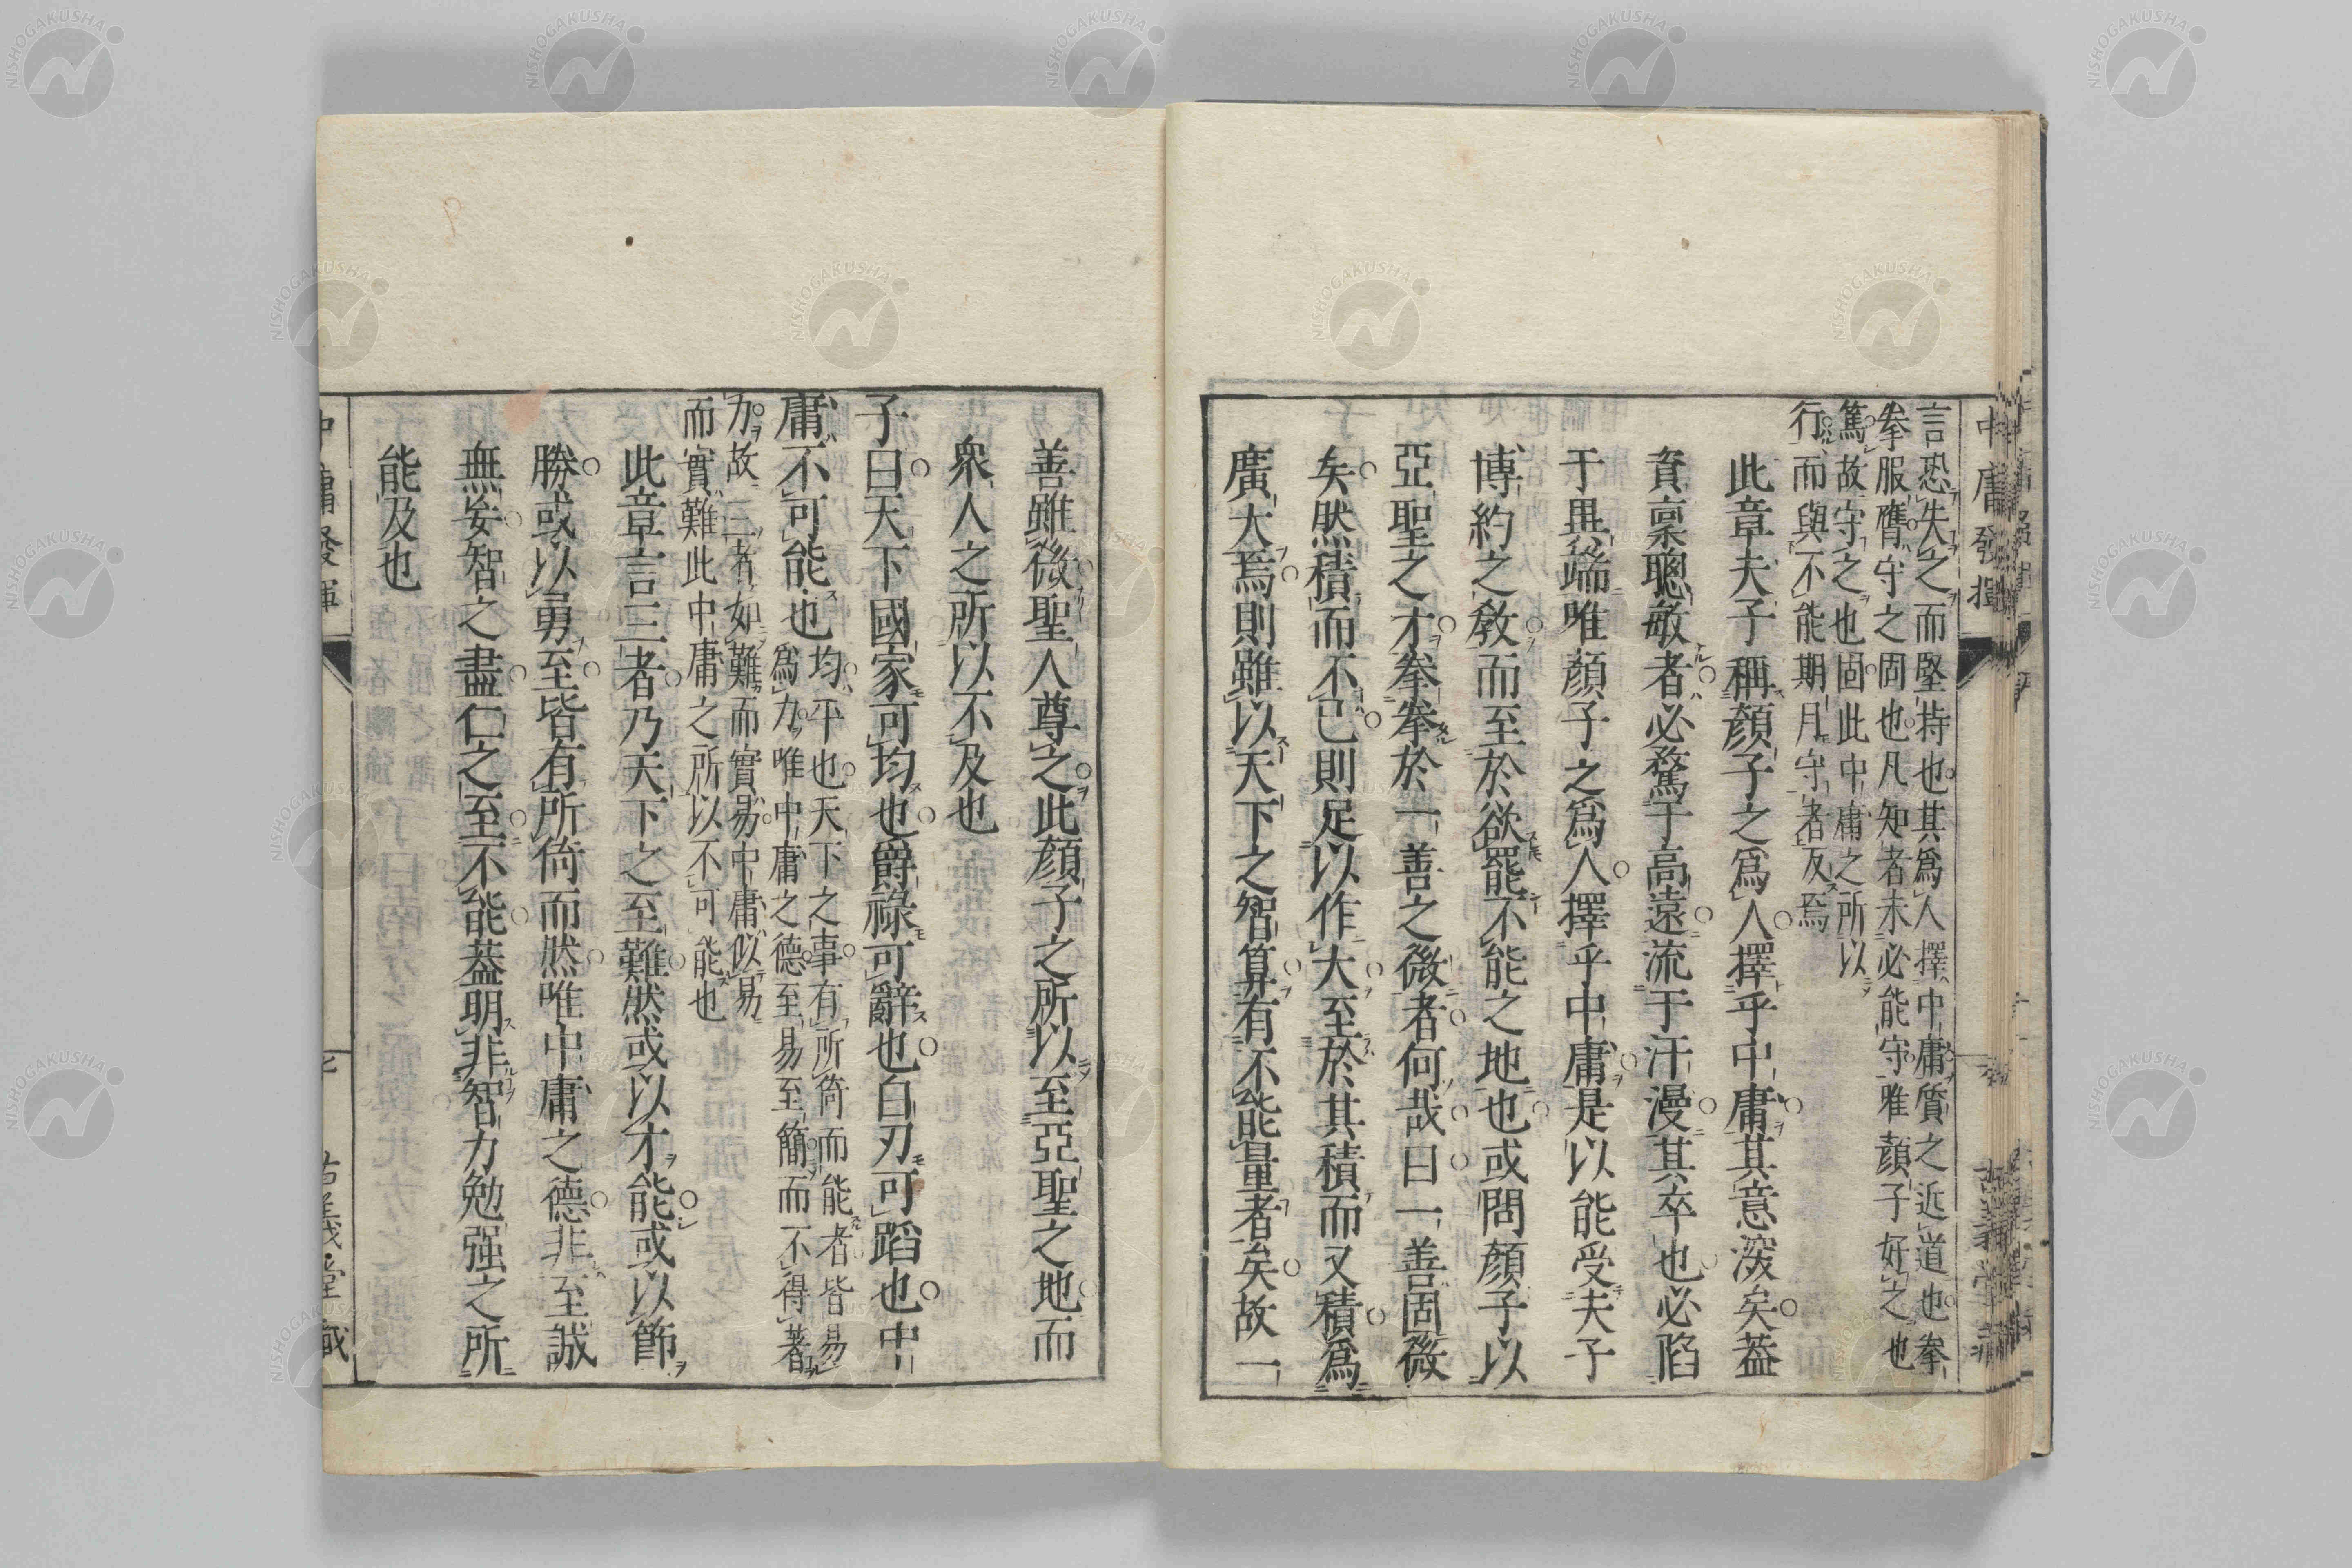 中庸發揮
言恐失之而堅持也其爲人擇中庸質之近道也拳
拳服膺守之固也凡知者未必能守唯顏子好之也
篤故守之也固此中庸之所以
行而與不能期月守者反焉
此章夫子稱顏子之爲人擇乎中庸其意深矣蓋
資稟聰敏者必騖于高遠流于汗漫其卒也必陷
于異端唯顏子之爲人擇乎中庸是以能受夫子
博約之敎而至於欲罷不能之地也或問顏子以
亞聖之才拳拳於一善之微者何哉曰一善固微
矣然積而不已則足以作大至於其積而又積爲
廣大焉則雖以天下之智算有不能量者矣故一
善雖微聖人尊之此顏子之所以至亞聖之地而
衆人之所以不及也
子曰天下國家可均也爵祿可辭也白刃可蹈也中
庸不可能也
均平也天下之事有所倚而能者皆易
爲力唯中庸之德至易至簡而不得著
力故三者如難而實易中庸似易
而實難此中庸之所以不可能也
此章言三者乃天下之至難然或以才能或以節
勝或以勇至皆有所倚而然唯中庸之德非至誠
無妄智之盡仁之至不能蓋明非智力勉强之所
能及也
中庸發揮
古義堂藏
NISHOGAKUSHA